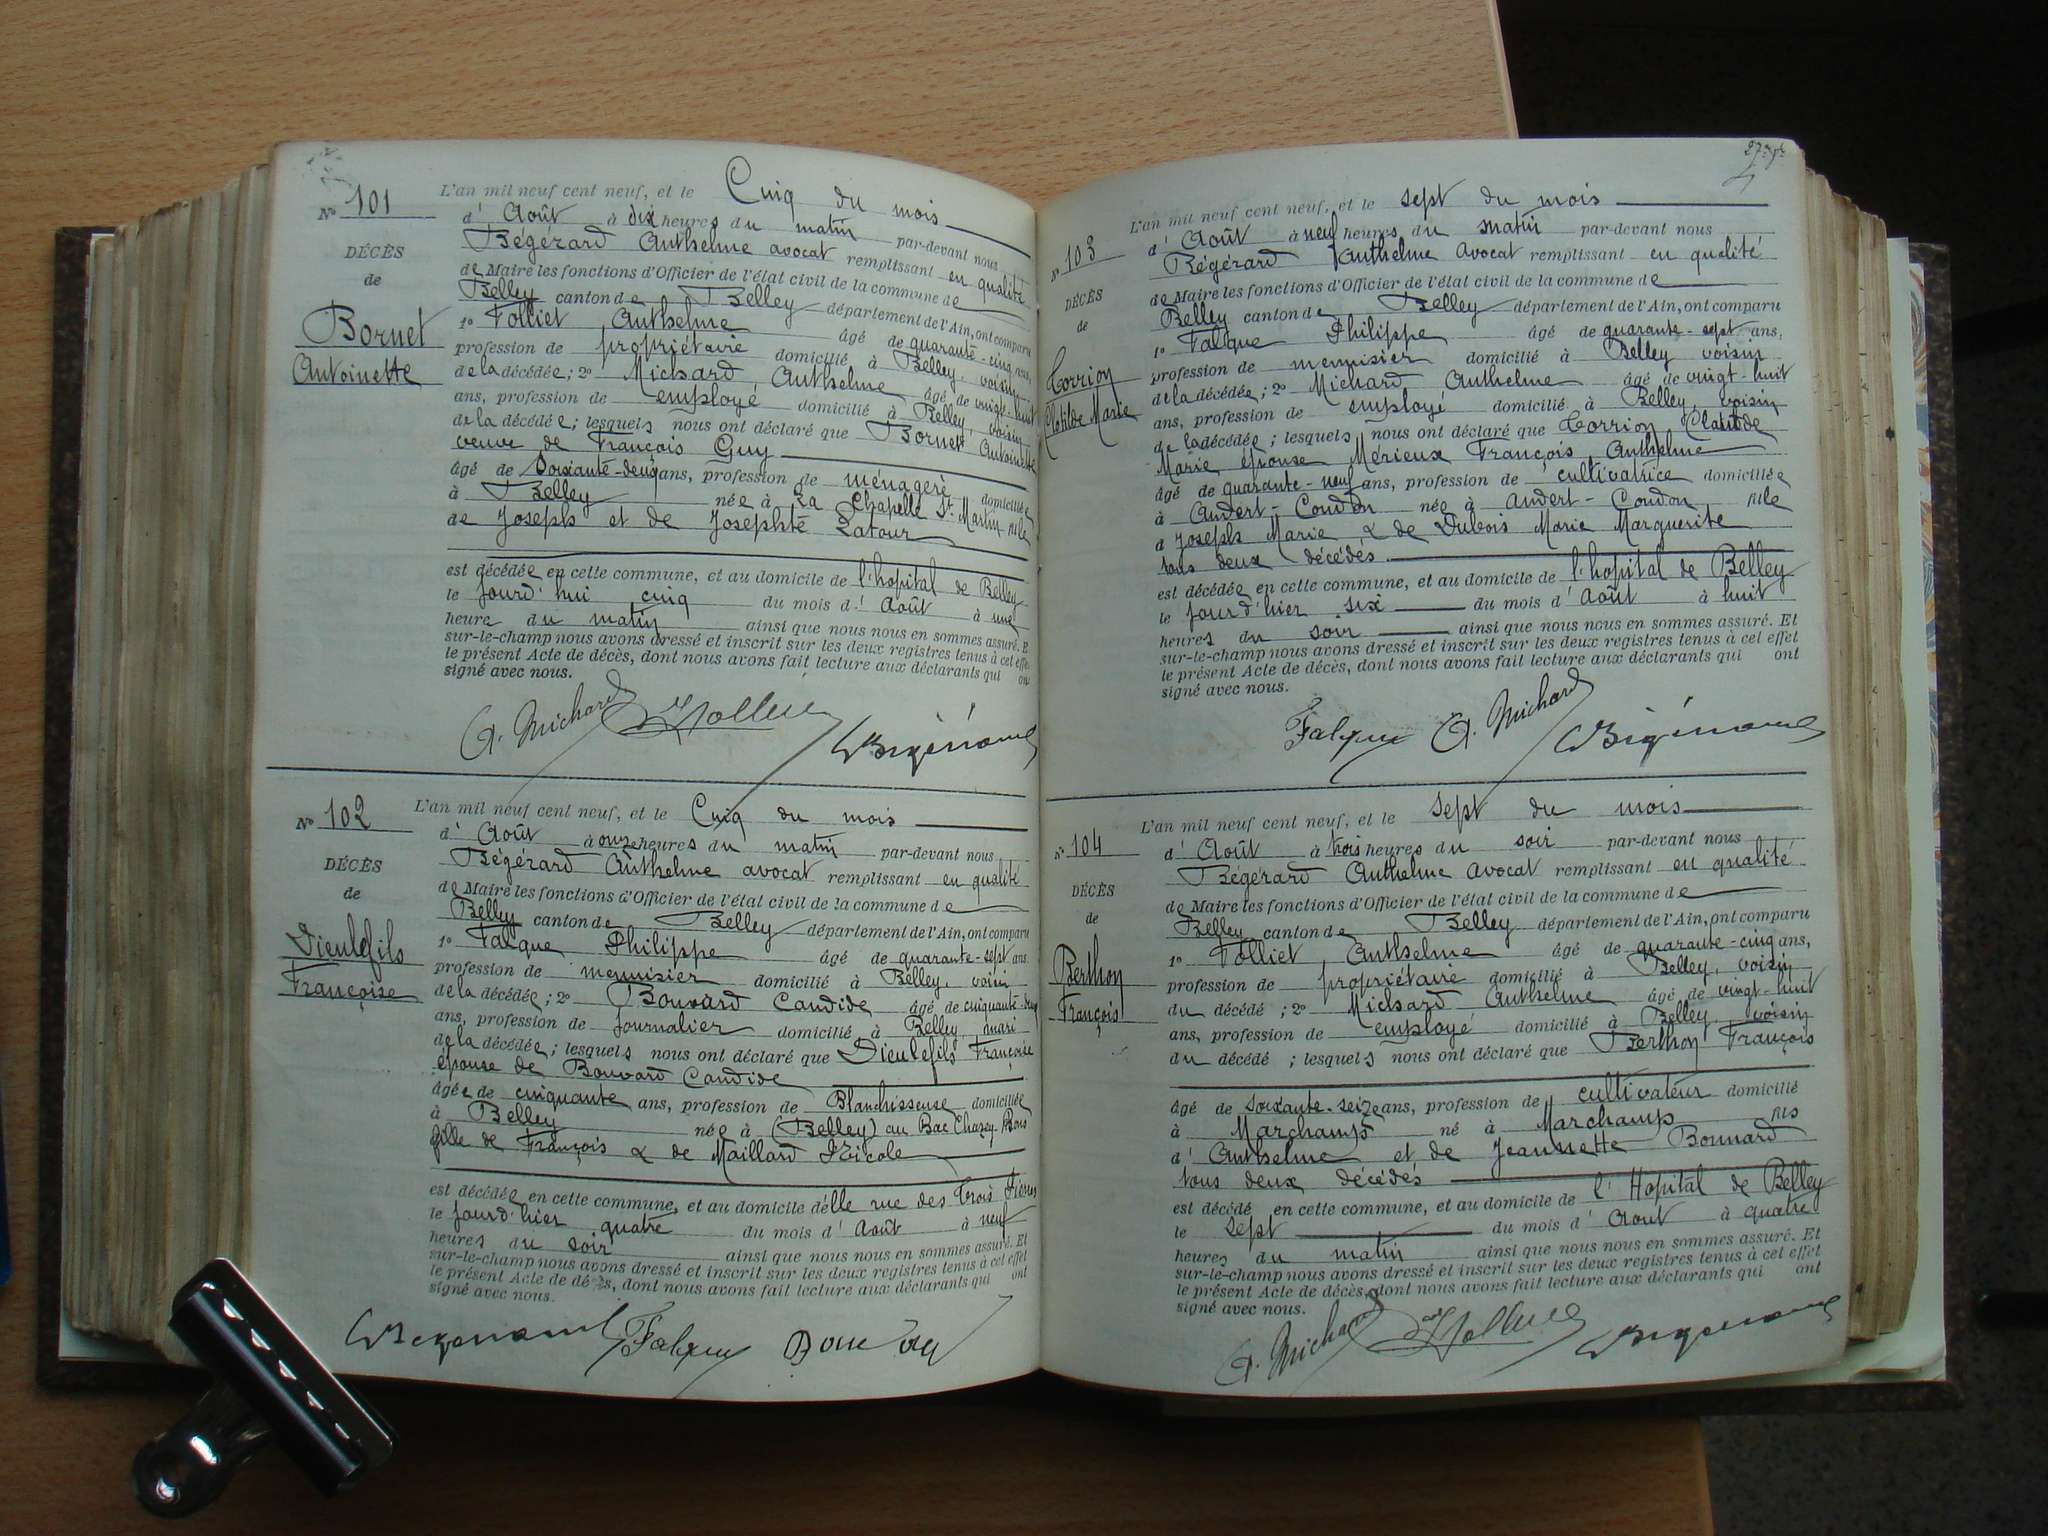 Nº 101
DÉCÈS
de
Bornet
Antoinette
L'an mil neuf cent neuf, et le Cinq du mois
d' Août à dix heures du matin par-devant nous
Bégérard Anthelme avocat remplissant en qualité
de Maire les fonctions d'Officier de l'état civil de la commune de
Belley canton de Belley département de l'Ain, ont comparu
1º Folliet Anthelme âgé de quarante-cinq ans,
profession de propriétaire domicilié à Belley, voisin
de la décédée; 2º Michard, Anthelme âgé de vingt-huit
ans, profession de employé domicilié à Belley, voisin
de la décédée; lesquels nous ont déclaré que Bornet Antoinette
veuve de François Guy
âgé de Soixante-deux ans, profession de ménagère domiciliée
à Belley née à La Chapelle St Martin fille
de Joseph et de Josephte Latour
est décédée en cette commune, et au domicile de l'hopital de Belley
le jourd'hui cinq du mois d' Août à une
heure du matin ainsi que nous nous en sommes assuré. Et
sur-le-champ nous avons dressé et inscrit sur les deux registres tenus à cet effet
le présent Acte de décès, dont nous avons fait lecture aux déclarants qui ont
signé avec nous.
A. Michard Folliet Bégérard
Nº 102
DÉCÈS
de
Dieulefils
Françoise
L'an mil neuf cent neuf, et le Cinq du mois
d' Août à onze heures du matin par-devant nous
Bégérard Anthelme avocat remplissant en qualité
de Maire les fonctions d'Officier de l'état civil de la commune de
Belley canton de Belley département de l'Ain, ont comparu
1º Falque Philippe âgé de quarante-sept ans
profession de menuisier domicilié à Belley, voisin
de la décédée; 2º Bouvard Candide âgé de cinquante-
ans, profession de journalier domicilié à Belley, mari
de la décédée; lesquels nous ont déclaré que Dieulefils Françoise
épouse de Bouvard Candide
âgée de cinquante ans, profession de Blanchisseuse domiciliée
à Belley née à (Belley) au Bac Chazey-Bons
fille de François & de Maillard Nicole
est décédée en cette commune, et au domicile d'elle rue des Trois
le jourd'hier quatre du mois d' Août à neuf
heures du soir ainsi que nous nous en sommes assuré. Et
sur-le-champ nous avons dressé et inscrit sur les deux registres tenus à cet effet
le présent Acte de décès, dont nous avons fait lecture aux déclarants qui ont
signé avec nous.
Bégérard Falque Bouvard
Nº 103
DÉCÈS
de
Torrion
Clotilde Marie
L'an mil neuf cent neuf, et le sept du mois
d' Août à neuf heures du matin par-devant nous
Bégérard Anthelme Avocat remplissant en qualité
de Maire les fonctions d'Officier de l'état civil de la commune de
Belley canton de Belley département de l'Ain, ont comparu
1º Falque Philippe âgé de quarante-sept ans,
profession de menuisier domicilié à Belley voisin
de la décédée; 2º Michard Anthelme âgé de vingt-huit
ans, profession de employé domicilié à Belley, voisin
de la décédée; lesquels nous ont déclaré que Torrion Clotilde
Marie, épouse Mérieux François, Anthelme
âgé de quarante-neuf ans, profession de cultivatrice domiciliée
à Andert-Condon née à Andert-Condon fille
d Joseph Marie & de Dubois Marie Marguerite
tous deux décédés
est décédée en cette commune, et au domicile de l'hopital de Belley
le jourd'hier six du mois d' Août à huit
heures du soir ainsi que nous nous en sommes assuré. Et
sur-le-champ nous avons dressé et inscrit sur les deux registres tenus à cet effet
le présent Acte de décès, dont nous avons fait lecture aux déclarants qui ont
signé avec nous.
Falque A. Michard Bégérard
Nº 104
DÉCÈS
de
Berthon
François
L'an mil neuf cent neuf, et le sept du mois
d' Août à trois heures du soir par-devant nous
Bégérard Anthelme Avocat remplissant en qualité
de Maire les fonctions d'Officier de l'état civil de la commune de
Belley canton de Belley département de l'Ain, ont comparu
1º Folliet, Anthelme âgé de quarante-cinq ans,
profession de propriétaire domicilié à Belley, voisin
du décédé; 2º Michard Anthelme âgé de vingt-huit
ans, profession de employé domicilié à Belley, voisin
du décédé; lesquels nous ont déclaré que Berthon François
âgé de soixante-seize ans, profession de cultivateur domicilié
à Marchamps né à Marchamps fils
d' Anthelme et de Jeannette Bonnard
tous deux décédés
est décédé en cette commune, et au domicile de l'Hopital de Belley
le sept du mois d' Aout à quatre
heures du matin ainsi que nous nous en sommes assuré. Et
sur-le-champ nous avons dressé et inscrit sur les deux registres tenus à cet effet
le présent Acte de décès, dont nous avons fait lecture aux déclarants qui ont
signé avec nous.
A. Michard Folliet Bégérard